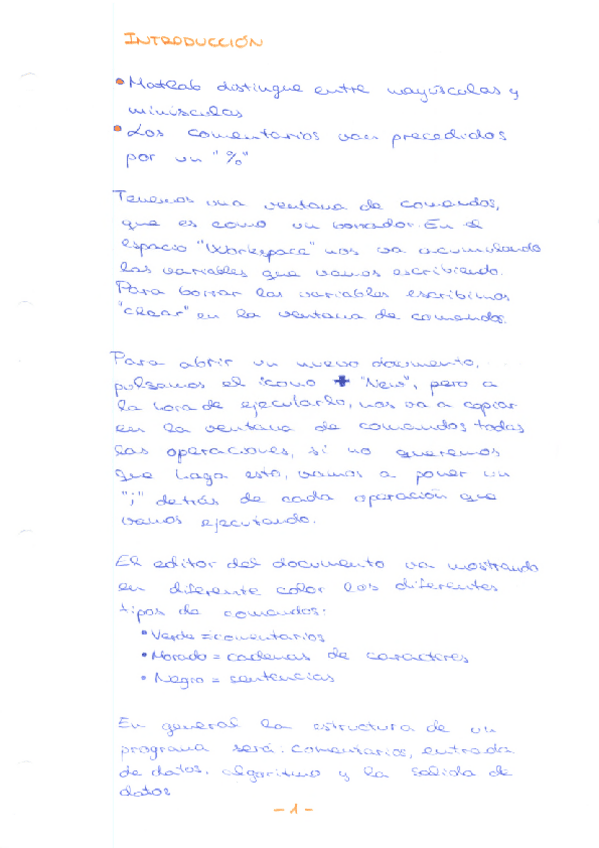 INTRODUCCIÓN
• Matlab distingue entre mayúsculas y
minúsculas
• Los comentarios van precedidos
por un "%"
Tenemos una ventana de comandos,
que es como un borrador. En el
espacio "Workspace" nos va acumulando
las variables que vamos escribiendo.
Para borrar las variables escribimos
"clear" en la ventana de comandos.
Para abrir un nuevo documento,
pulsamos el icono + "New", pero a
la hora de ejecutarlo, nos va a copiar
en la ventana de comandos todas
las operaciones, si no queremos
que haga esto, vamos a poner un
";" detrás de cada operación que
vamos ejecutando.
El editor del documento va mostrando
en diferente color los diferentes
tipos de comandos:
• Verde = comentarios
• Morado = cadenas de caracteres
• Negro = sentencias
En general la estructura de un
programa será: comentarios, entrada
de datos, algoritmo y la salida de
datos
- 1 -